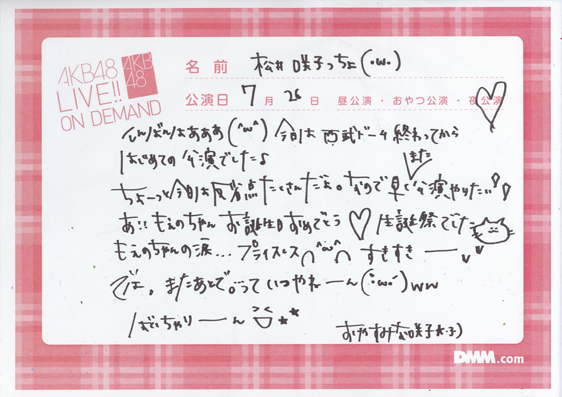 AKB48
LIVE!!
ON DEMAND
AKB
48
名前 松井咲子っちょ(・ω・)
公演日 7月26日 昼公演・おやつ公演・夜公演
こんばんはぁぁぁ(^ω^)今日は西武ドーム終わってから
はじめての公演でした♪
ちょーっと今日は反省点たくさんだよ。なので早くまた公演やりたい!!
あ!!もえのちゃんお誕生日おめでとう♡生誕祭でした
もえのちゃんの涙…プライスレス∩^ω^∩すきすきー
では、またあとで。っていつやねーん(・ω・)ww
ばいちゃりーーん
おやすみな咲子
DMM.com